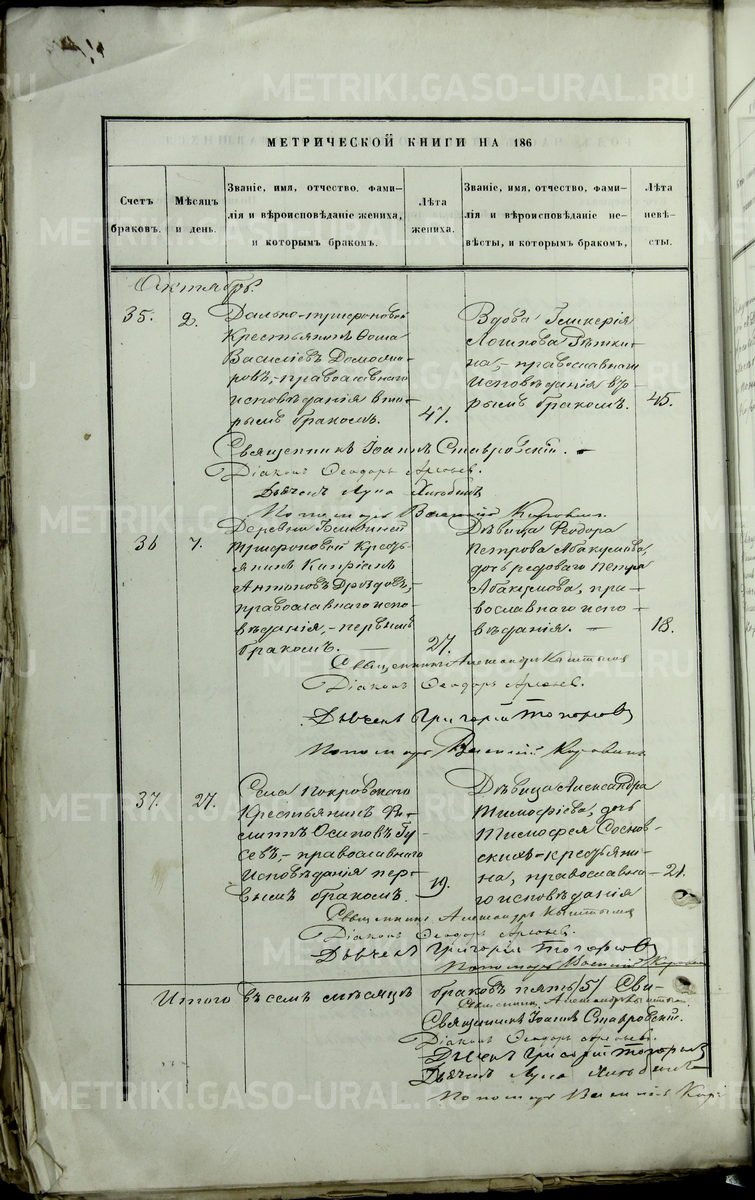 METRIKI.GASO-URAL.RU
МЕТРИЧЕСКОЙ КНИГИ НА 186
Счетъ браковъ.
Мѣсяцъ и день.
Званіе, имя, отчество, фами-
лія и вѣроисповѣданіе жениха,
и которымъ бракомъ.
Лѣта жениха.
Званіе, имя, отчество, фами-
лія и вѣроисповѣданіе не-
вѣсты, и которымъ бракомъ,
Лѣта невѣ-
сты.
Октябрь.
35.
2.
Дально-трифоновой
Крестьянинъ Ѳома
Василіевъ
ровъ, православнаго
исповѣданія вто-
рымъ бракомъ.
47.
Вдова Гликерія
на, православнаго
исповѣданія вто-
рымъ бракомъ.
45.
Священникъ Іоаннъ Ставровскій.
Діаконъ Ѳеодоръ
Дьячекъ Лука
Пономарь Василій
36
7.
Деревни Ближней
Трифоновой Кресть-
янинъ Кипріанъ
Антоновъ Дроздовъ,
православнаго испо-
вѣданія, первымъ
бракомъ.
27.
Дѣвица Ѳеодора
Петрова Абакумова,
дочь рядоваго Петра
Абакумова, пра-
вославнаго испо-
вѣданія.
18.
Священникъ Александръ
Діаконъ Ѳеодоръ
Дьячекъ Григорій Топорковъ
Пономарь Василій Коровинъ
37.
27.
Села Покровскаго
Крестьянинъ Фи-
липпъ Осиповъ Гу-
севъ, православнаго
исповѣданія пер-
вымъ бракомъ.
19.
Дѣвица Александра
Тимофіева, дочь
Тимофея Соснов-
скихъ крестьяни-
на, православна-
го исповѣданія
21.
Священникъ Александръ
Діаконъ Ѳеодоръ
Дьячекъ Григорій Топорковъ
Пономарь Василій
Итого въ семъ мѣсяцѣ браковъ пять /5/
Священникъ Александръ
Священникъ Іоаннъ Ставровскій.
Діаконъ Ѳеодоръ
Дьячекъ Григорій Топорковъ
Дьячекъ Лука
Пономарь Василій